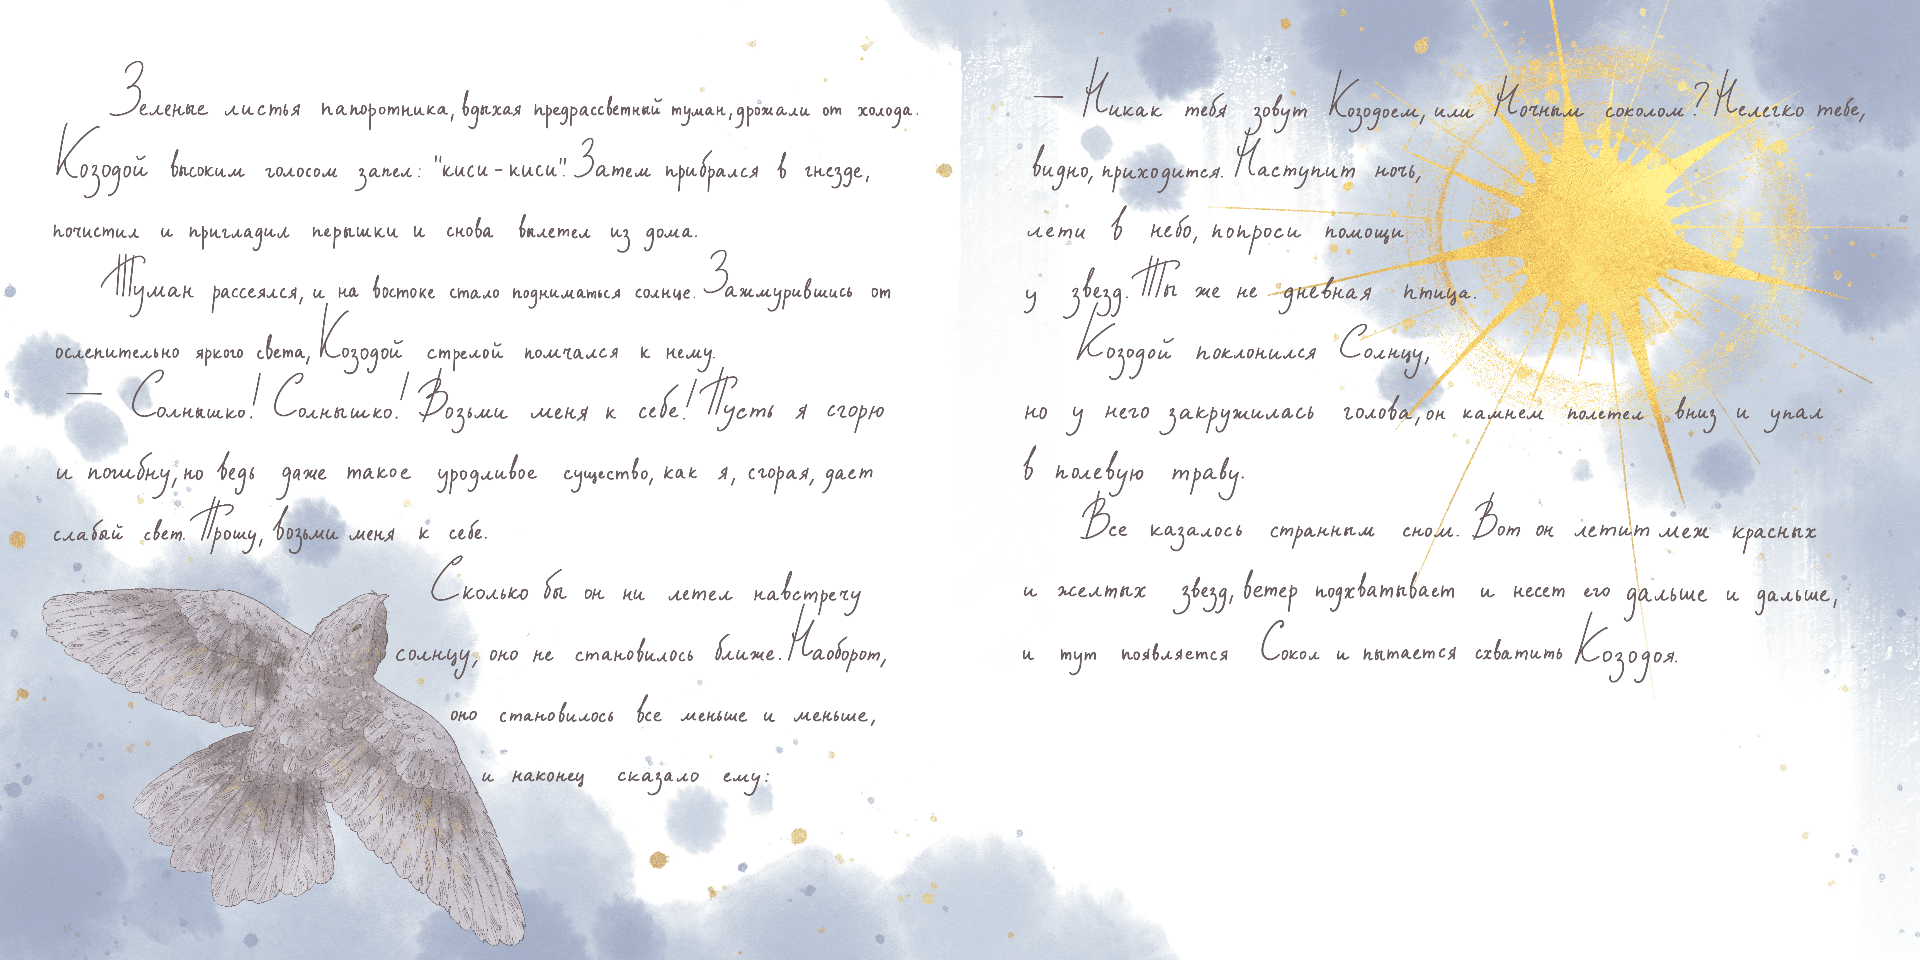 Зеленые листья папоротника, вдыхая предрассветный туман, дрожали от холода.
Козодой высоким голосом запел: "киси-киси". Затем прибрался в гнезде,
почистил и пригладил перышки и снова вылетел из дома.
Туман рассеялся, и на востоке стало подниматься солнце. Зажмурившись от
ослепительно яркого света, Козодой стрелой помчался к нему.
— Солнышко! Солнышко! Возьми меня к себе! Пусть я сгорю
и погибну, но ведь даже такое уродливое существо, как я, сгорая, дает
слабый свет. Прошу, возьми меня к себе.
Сколько бы он ни летел навстречу
солнцу, оно не становилось ближе. Наоборот,
оно становилось все меньше и меньше,
и наконец сказало ему:
— Никак тебя зовут Козодоем, или Ночным соколом? Нелегко тебе,
видно, приходится. Наступит ночь,
лети в небо, попроси помощи
у звезд. Ты же не дневная птица.
Козодой поклонился Солнцу,
но у него закружилась голова, он камнем полетел вниз и упал
в полевую траву.
Все казалось странным сном. Вот он летит меж красных
и желтых звезд, ветер подхватывает и несет его дальше и дальше,
и тут появляется Сокол и пытается схватить Козодоя.